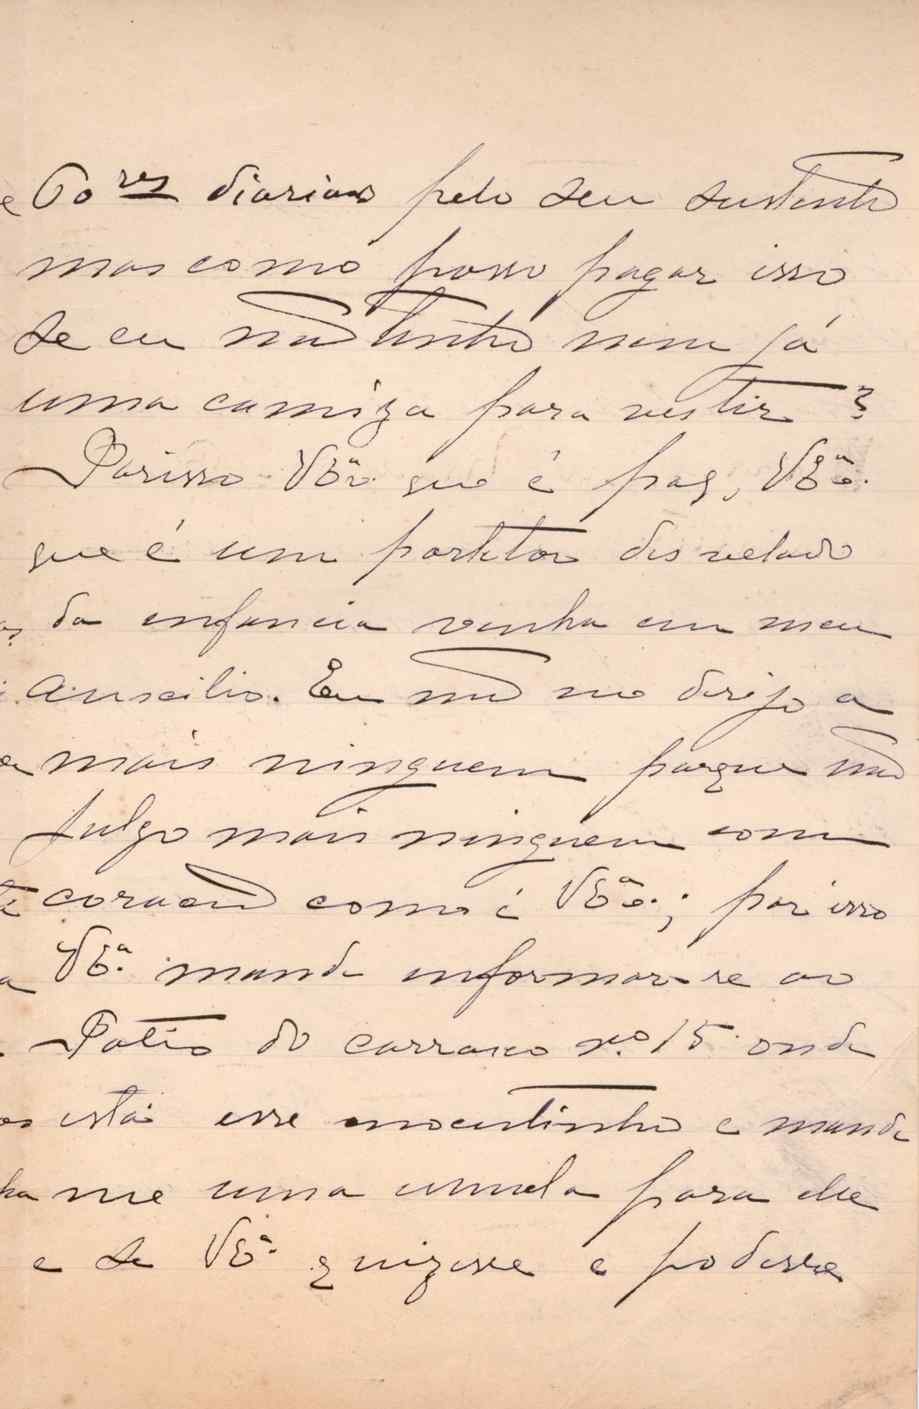 60 res diarios pelo seu sustento
mas como posso pagar isso
se eu não tenho nem já
uma camiza para vestir?
Porisso VExa. que é pae, VExa.
que é um portetor disvelado
da enfancia venha em meu
Auscilio. Eu não me dirijo a
mais ninguem porque não
julgo mais ninguem com
coração como é VExa.; por isso
VEª. mande enformar-se ao
Patio do carrasco nº. 15 onde
está esse inocentinho e mande
me uma esmola para elle
e se VEª. quizesse e podesse